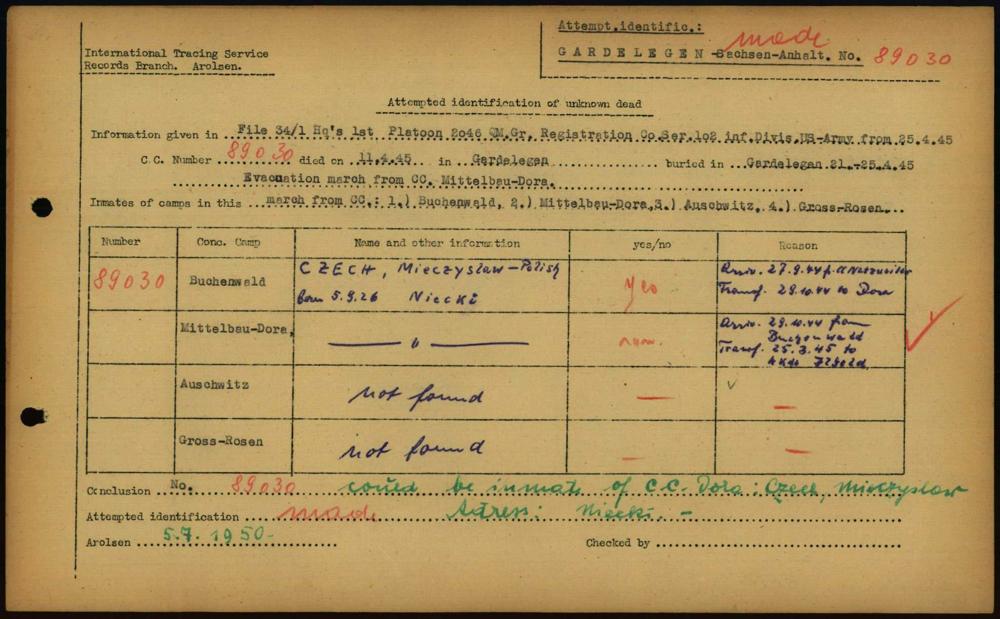 Attempt.identific.:
made
GARDELEGEN -Sachsen-Anhalt. No. 89030
International Tracing Service
Records Branch. Arolsen.
Attempted identification of unknown dead
Information given in File 34/1 Hq's 1st Platoon 2046 QM.Gr, Registration Co.Ser.1o2 inf.Divis.US-Army from 25.4.45
C.C. Number 89030 died on 11.4.45 in Gardelegen buried in Gardelegan 21.-25.4.45
Evacuation march from CC. Mittelbau-Dora.
Inmates of camps in this march from CC.: 1.) Buchenwald, 2.) Mittelbau-Dora,3.) Auschwitz, 4.) Gross-Rosen
Number Conc. Camp Name and other information yes/no Reason
89030 Buchenwald CZECH, Mieczyslaw-Polish yes Arriv. 27.9.44 f. Natzweiler
born 5.9.26 Niecki Transf. 29.10.44 to Dora
Mittelbau-Dora, — " — Arriv. 29.10.44 from
Buchenwald
Transf. 25.3.45 to
Auschwitz not found — —
Gross-Rosen not found — —
Conclusion No. 89030 could be inmate of C.C. Dora: Czech, Mieczyslaw
Attempted identification made Adress: Niecki. -
Arolsen 5.7.1950- Checked by